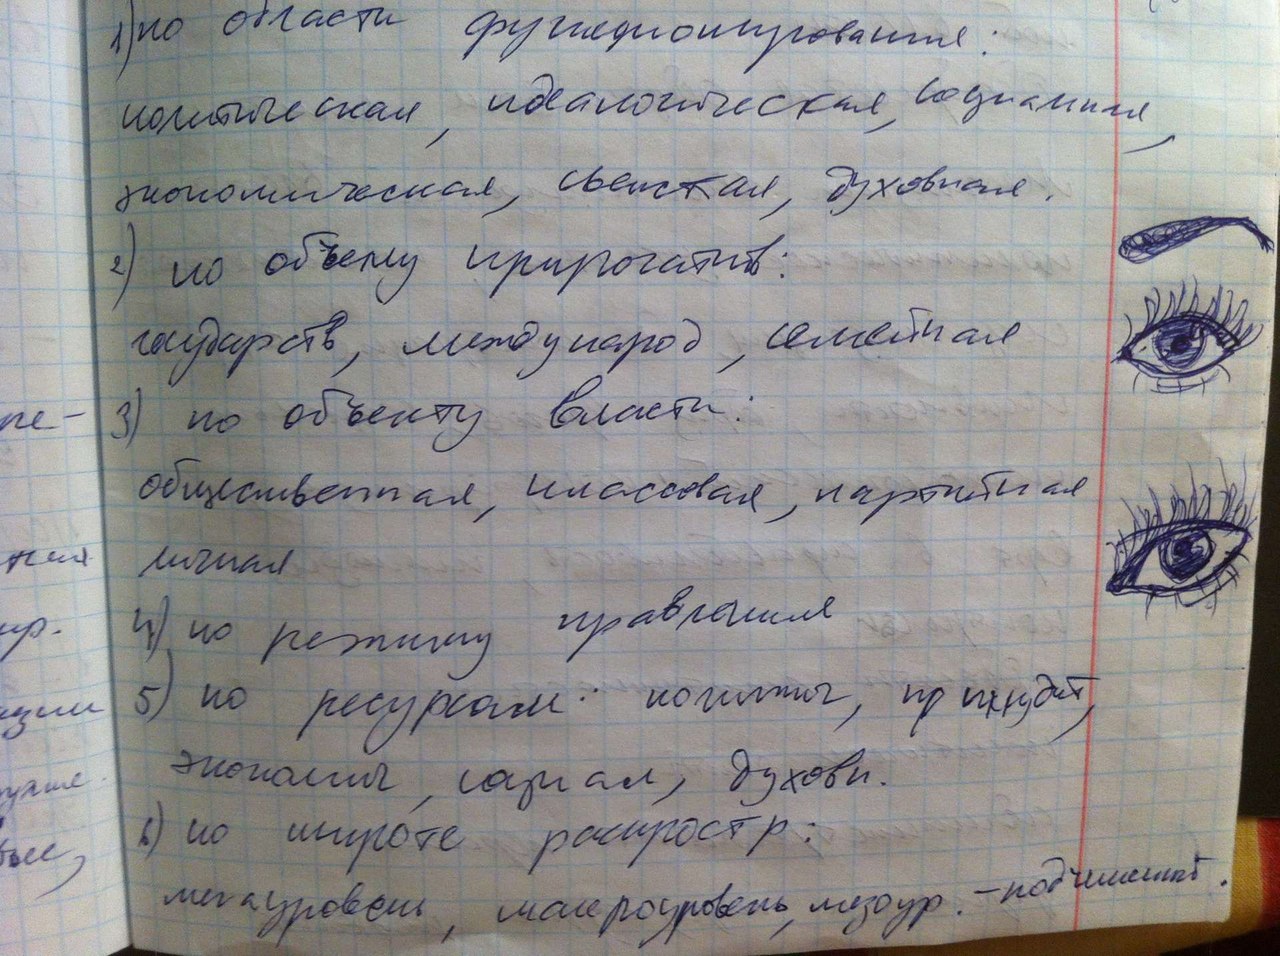 1) по области функционирования:
политическая, идеалогическая, социальная,
экономическая, светская, духовная.
2) по объему прирогатив:
государств, международ, семейная
3) по объекту власти:
общественная, классовая, партийная
личная
4) по режиму правления
5) по ресурсам: политич, принудит,
экономич, социал, духовн.
6) по широте распростр:
мегауровень, макроуровень, мезоур. -
пе-
ная
ир.
ации